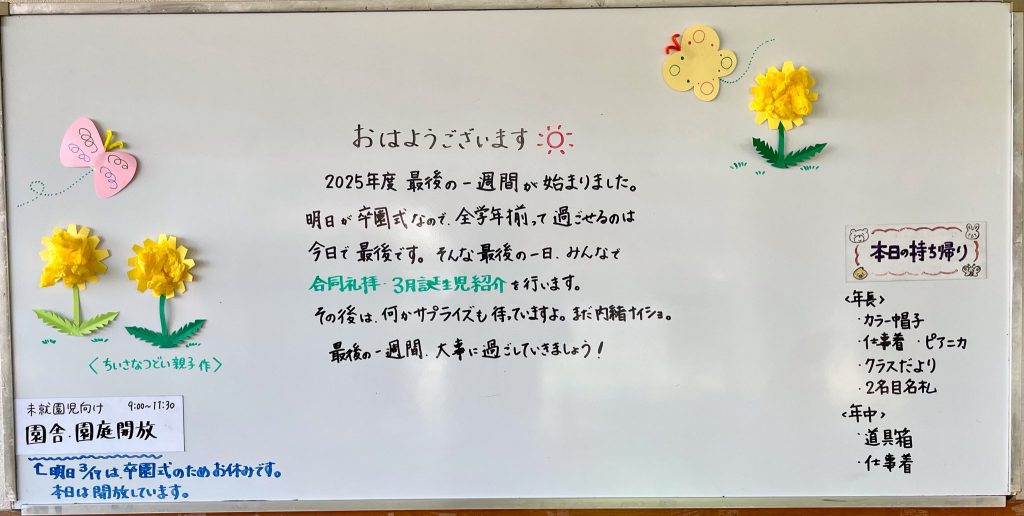 おはようございます
2025年度 最後の一週間が始まりました。
明日が卒園式なので、全学年揃って過ごせるのは
今日で最後です。そんな最後の一日、みんなで
合同礼拝・3月誕生児紹介を行います。
その後は、何かサプライズも待っていますよ。まだ内緒ナイショ。
最後の一週間、大事に過ごしていきましょう!
〈ちいさなつどい親子作〉
未就園児向け 9:00~11:30
園舎・園庭開放
↑明日3/17は、卒園式のためお休みです。
本日は開放しています。
本日の持ち帰り
〈年長〉
・カラー帽子
・仕事着 ・ピアニカ
・クラスだより
・2名目名札
〈年中〉
・道具箱
・仕事着